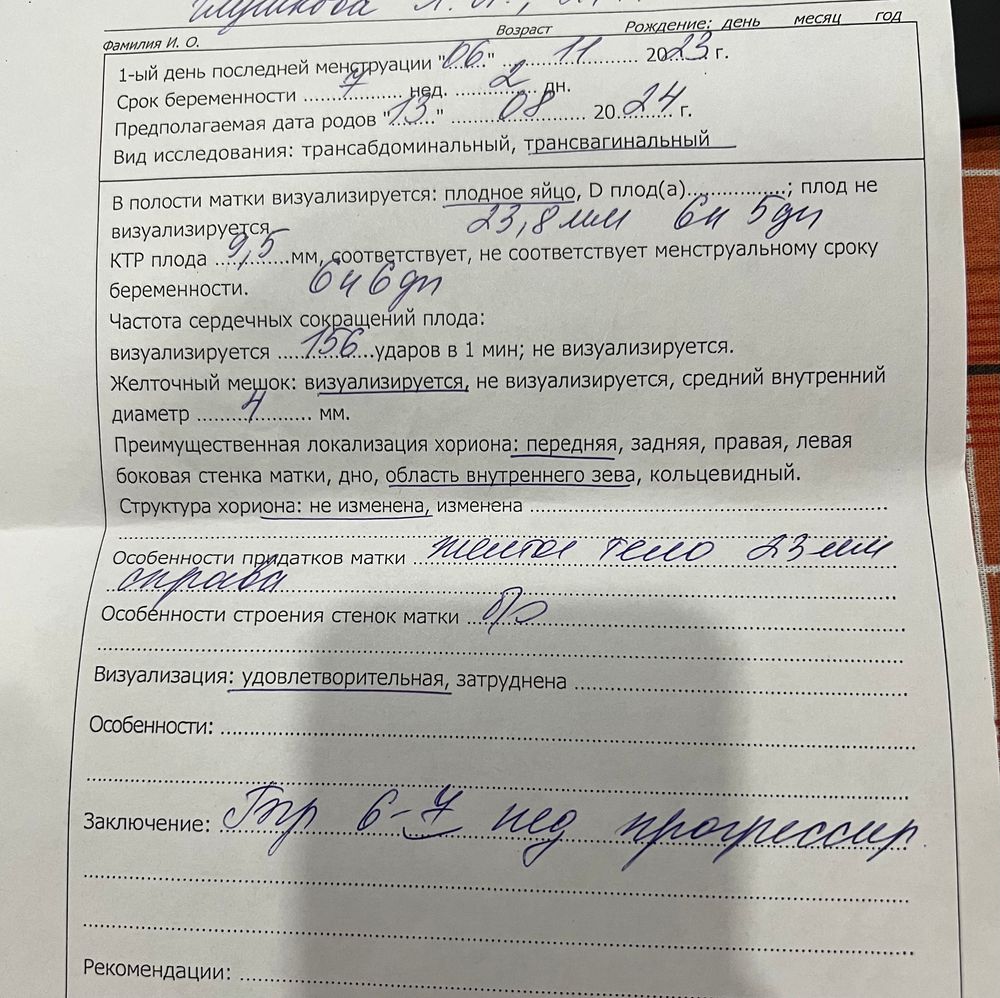 Глушкова
Фамилия И. О. Возраст Рождение: день месяц год
1-ый день последней менструации "06" 11 2023 г.
Срок беременности 7 нед. 2 дн.
Предполагаемая дата родов "13" 08 2024 г.
Вид исследования: трансабдоминальный, трансвагинальный
В полости матки визуализируется: плодное яйцо, D плод(а)................; плод не
визуализируется 23,8 мм 6н 5дн
КТР плода 9,5 мм, соответствует, не соответствует менструальному сроку
беременности. 6н 6дн
Частота сердечных сокращений плода:
визуализируется 156 ударов в 1 мин; не визуализируется.
Желточный мешок: визуализируется, не визуализируется, средний внутренний
диаметр 4 мм.
Преимущественная локализация хориона: передняя, задняя, правая, левая
боковая стенка матки, дно, область внутреннего зева, кольцевидный.
Структура хориона: не изменена, изменена
Особенности придатков матки желтое тело 23 мм
справа
Особенности строения стенок матки б/о
Визуализация: удовлетворительная, затруднена
Особенности:
Заключение: Бер 6-7 нед прогрессир
Рекомендации: